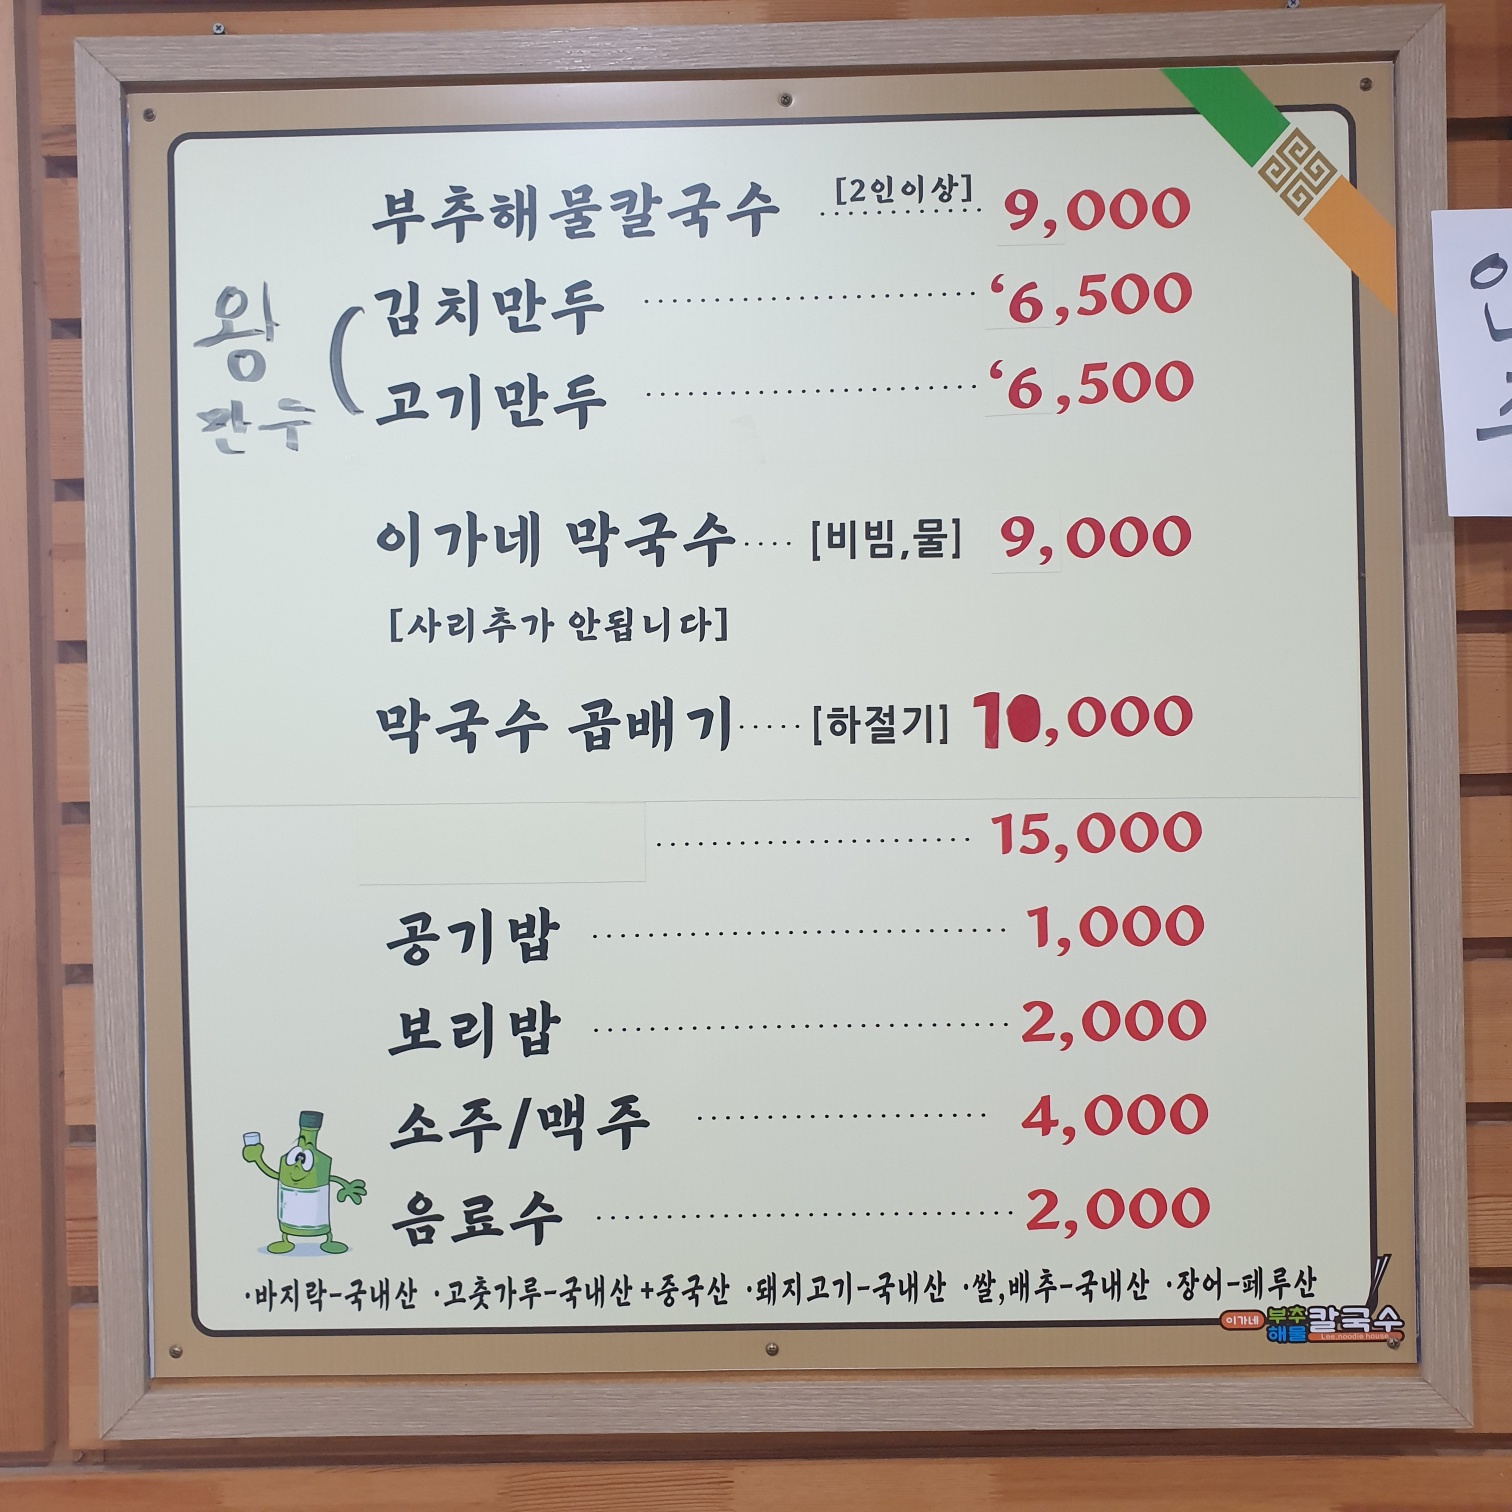 부추해물칼국수 [2인이상] 9,000
왕만두
김치만두 6,500
고기만두 6,500
이가네 막국수 [비빔,물] 9,000
[사리추가 안됩니다]
막국수 곱배기 [하절기] 10,000
15,000
공기밥 1,000
보리밥 2,000
소주/맥주 4,000
음료수 2,000
·바지락-국내산 ·고춧가루-국내산+중국산 ·돼지고기-국내산 ·쌀,배추-국내산 ·장어-페루산
이가네 부추해물칼국수
Lee.noodle house